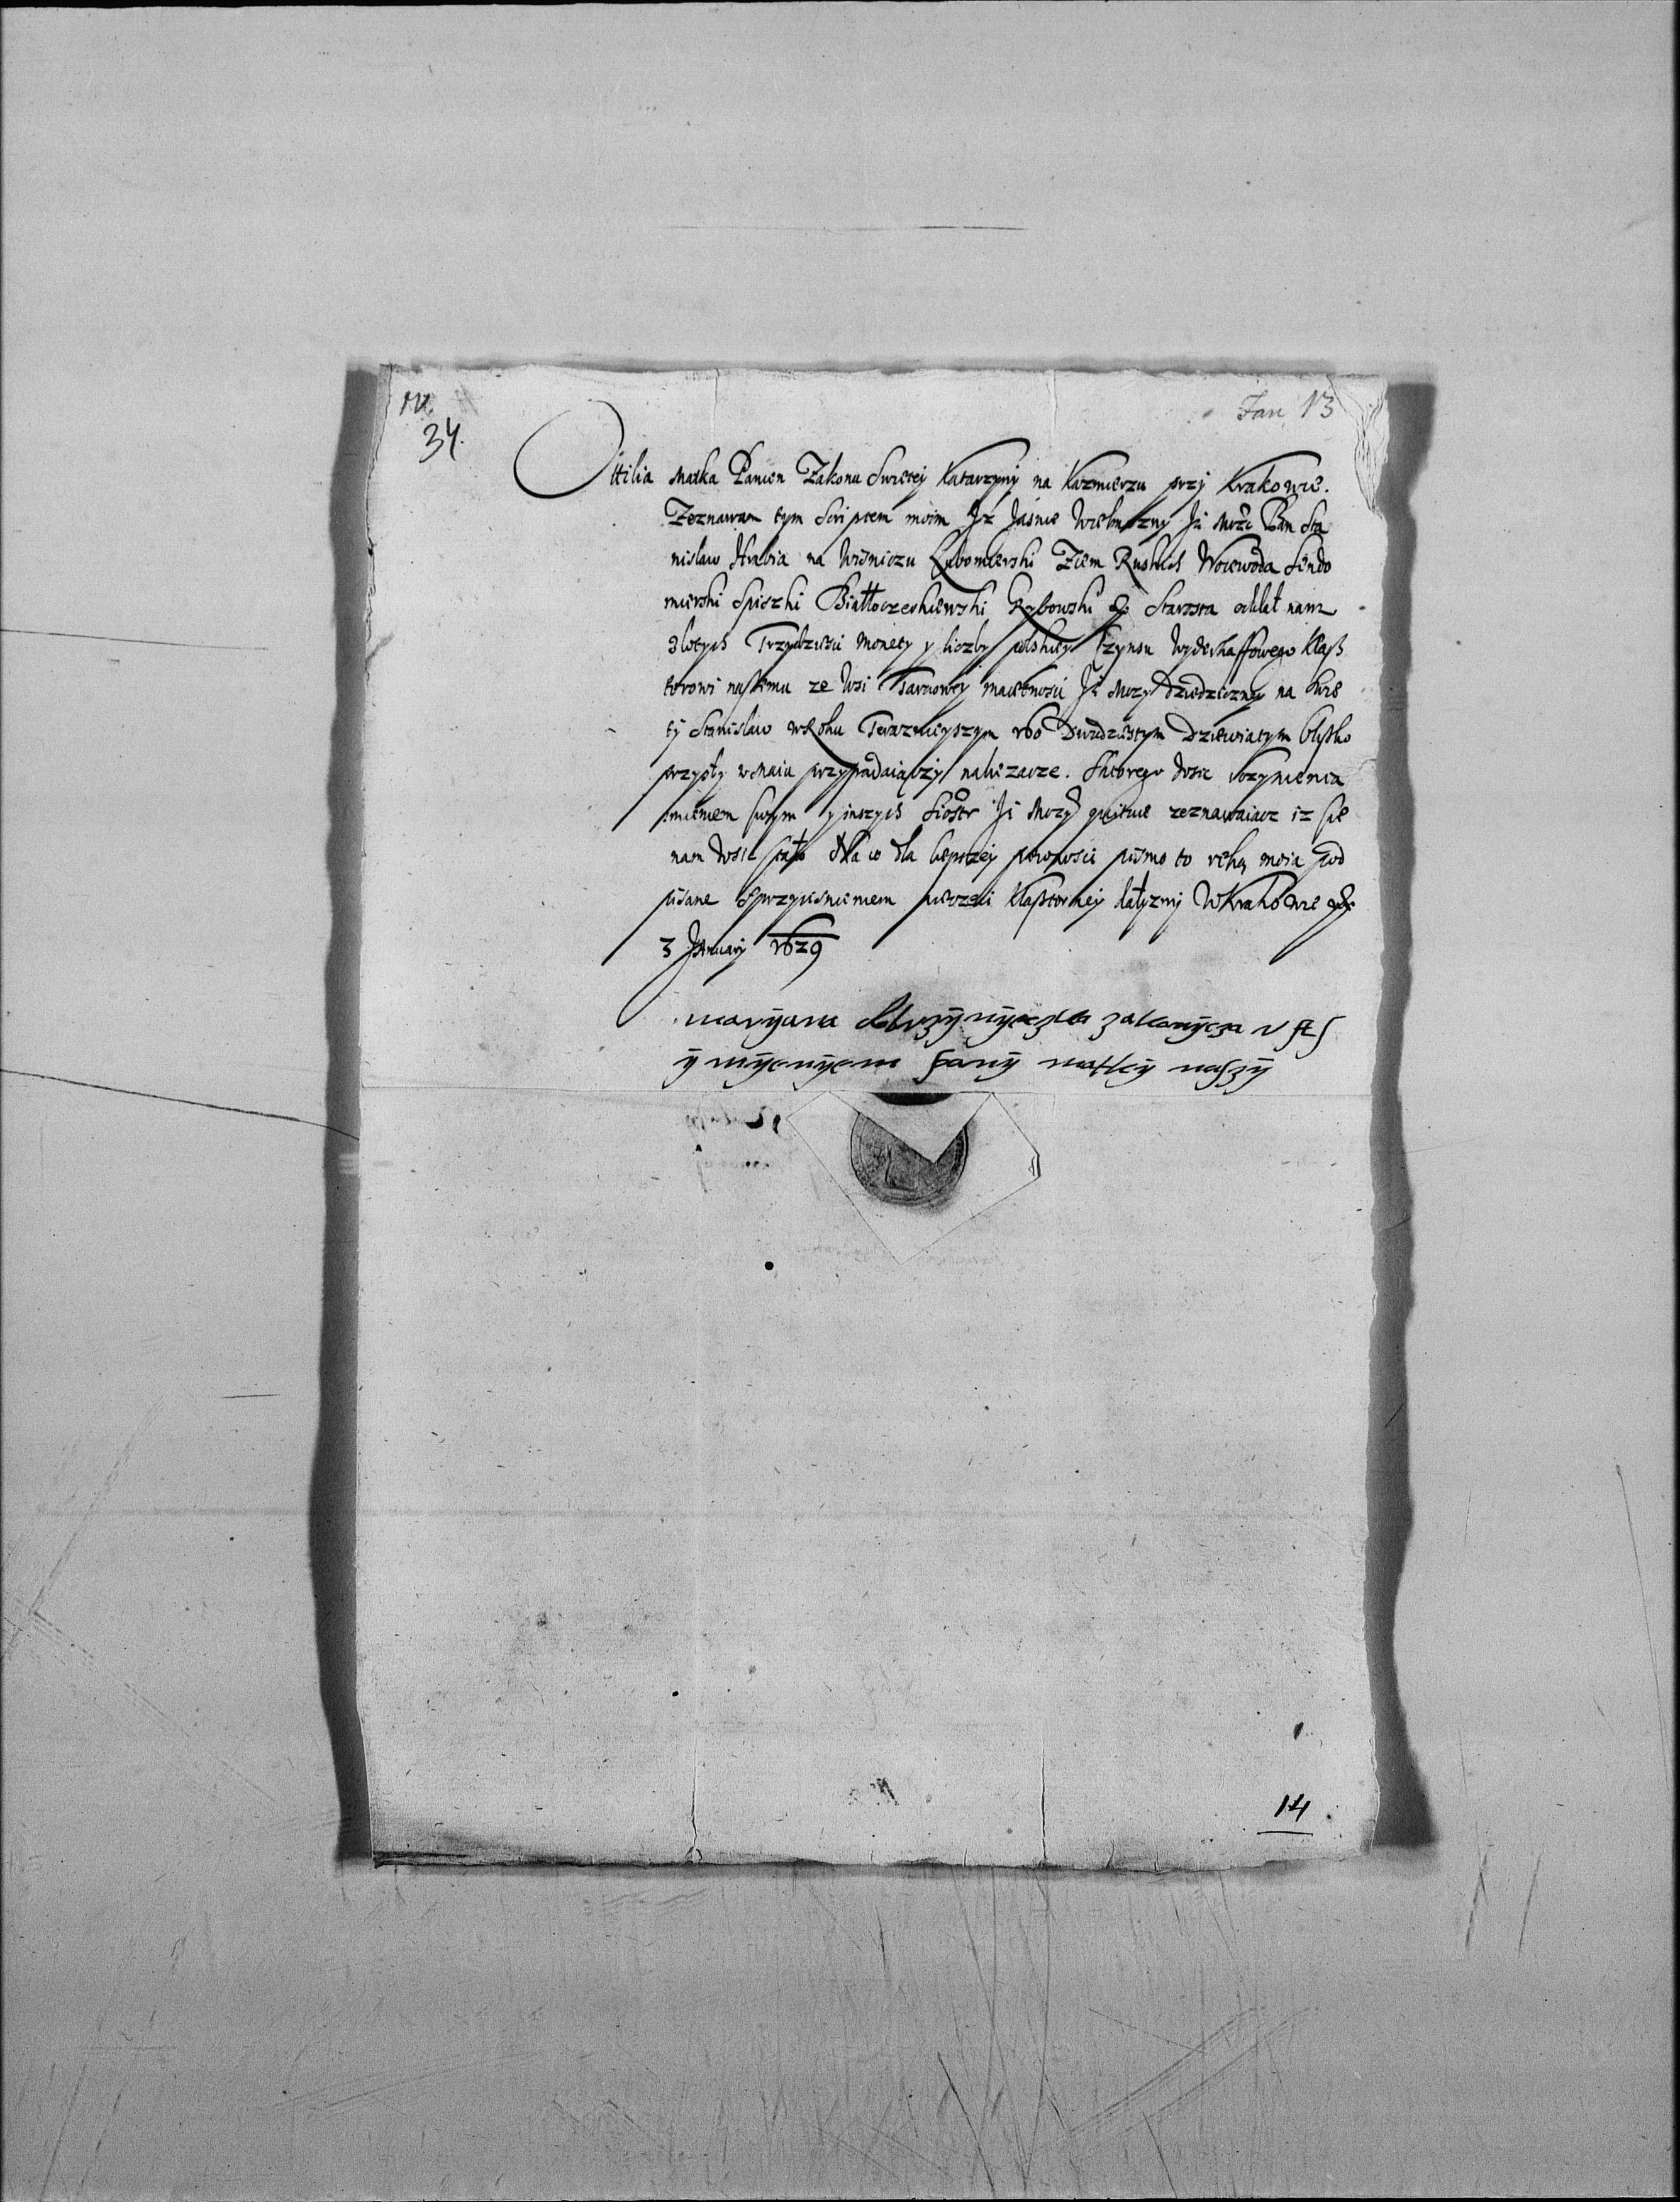 IV.
34.
Jan 13
Ottilia Matka Panien Zakonu Swietej Katarzyny na Kazmierzu przy Krakowie.
Zeznawam tym Scriptem moim Iz Jasnie Wielmozny Je Mozc Pan Sta
nislaw Hrabia na Wisniczu Lubomierski Ziem Ruskich Woiewoda Sendo
mierski Spiszki Białłoczerkiewski Grybowski Starosta oddał nam
złotych Trzydzieści Monety y liczby polskiey Czynsu Wyderkaffowego Klasz
torowi naszemu ze Wsi Tarnowey maietnosci Je Mozy dziedziczney na Swie
ty Stanislaw w Roku Terazneyszym 160 Dwudziestym Dziewiatym blysko
przyszły w Maiu przypadaiączy należacze. Ktorego dosic Vczynienia
imieniem swym y inszych Siostr Je Mozy quituie zeznawaiacz iz sie
nam dosic stało Na co dla lepszej pewnosci pismo to ręką moią pod
pisane Sprzycisnieniem pieczeci Klasztorney datyzmy W Krakowie
3 January 1629
maryana zakonycza
ymyenyem pany matky naszy
14